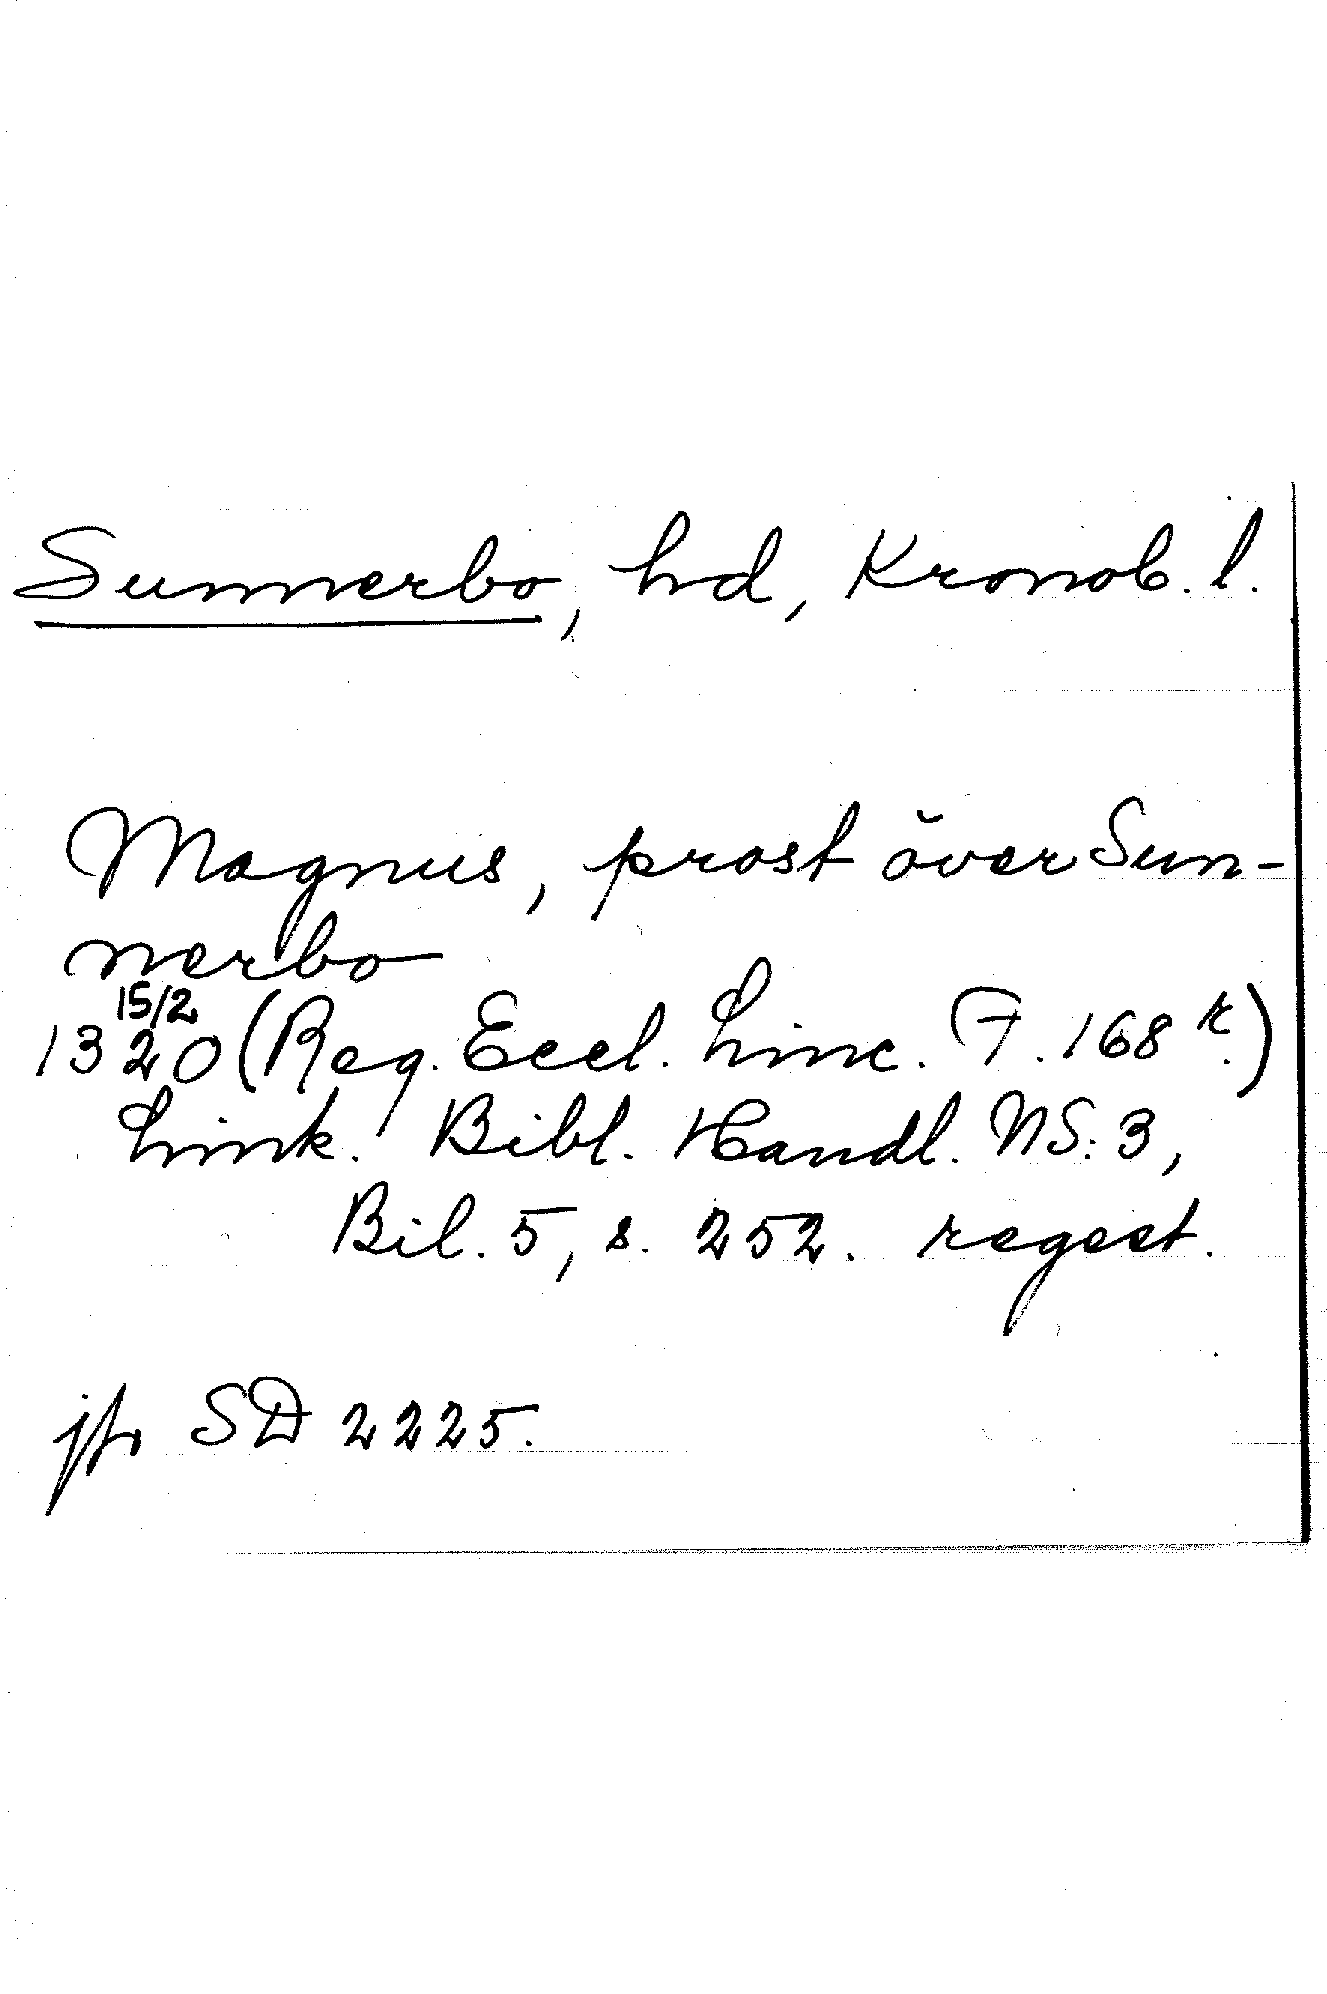 Sunnerbo, hd, Kronob. l.
Magnus, prost över Sun-
nerbo
15/2
1320 (Reg. Eccl. Linc. F. 168 r.)
Link. Bibl. Handl. NS: 3,
Bil. 5, s. 252. regest.
jfr SD 2225.